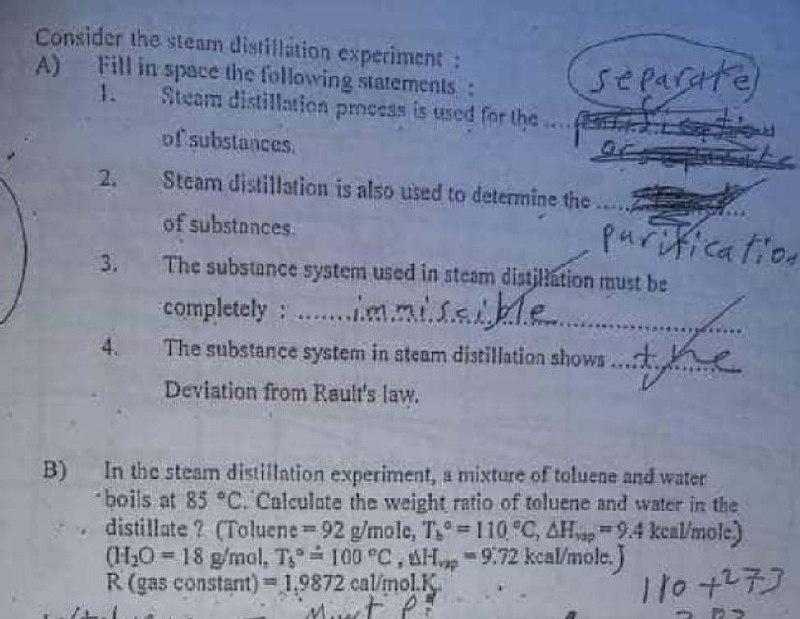 Consider the steam distillation experiment :
A) Fill in space the following statements :
separate
1. Steam distillation process is used for the ....
of substances.
2. Steam distillation is also used to determine the .....
of substances.
purification
3. The substance system used in steam distillation must be
completely : .......immiscible..................
4. The substance system in steam distillation shows ...the
Deviation from Rault's law.
B) In the steam distillation experiment, a mixture of toluene and water
boils at 85 °C. Calculate the weight ratio of toluene and water in the
distillate ? (Toluene = 92 g/mole, Tb° = 110 °C, ΔHvap = 9.4 kcal/mole.)
(H₂O = 18 g/mol, Tb° = 100 °C , ΔHvap = 9.72 kcal/mole.)
R (gas constant) = 1.9872 cal/mol.K.
110 + 273